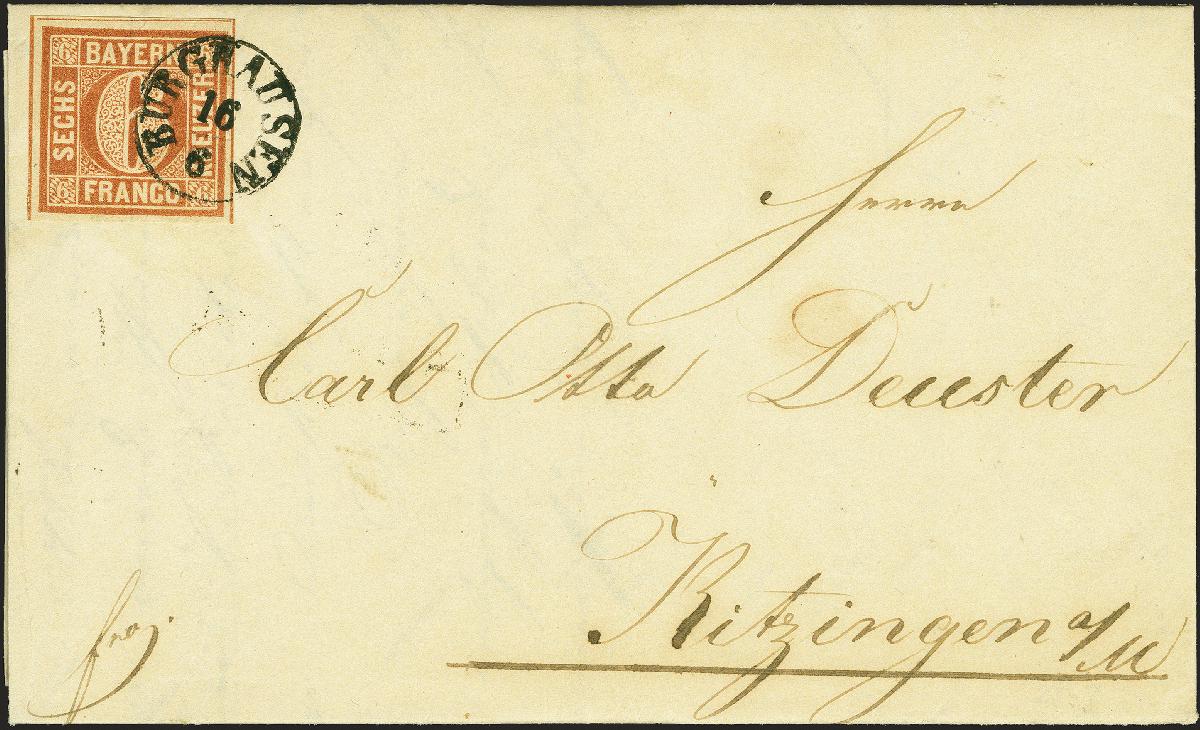 BAYERN
SECHS
KREUZER
FRANCO
6
6
6
6
BURGHAUSEN
16
8
Herrn
Carl Otto Deuster
Kitzingen a/M